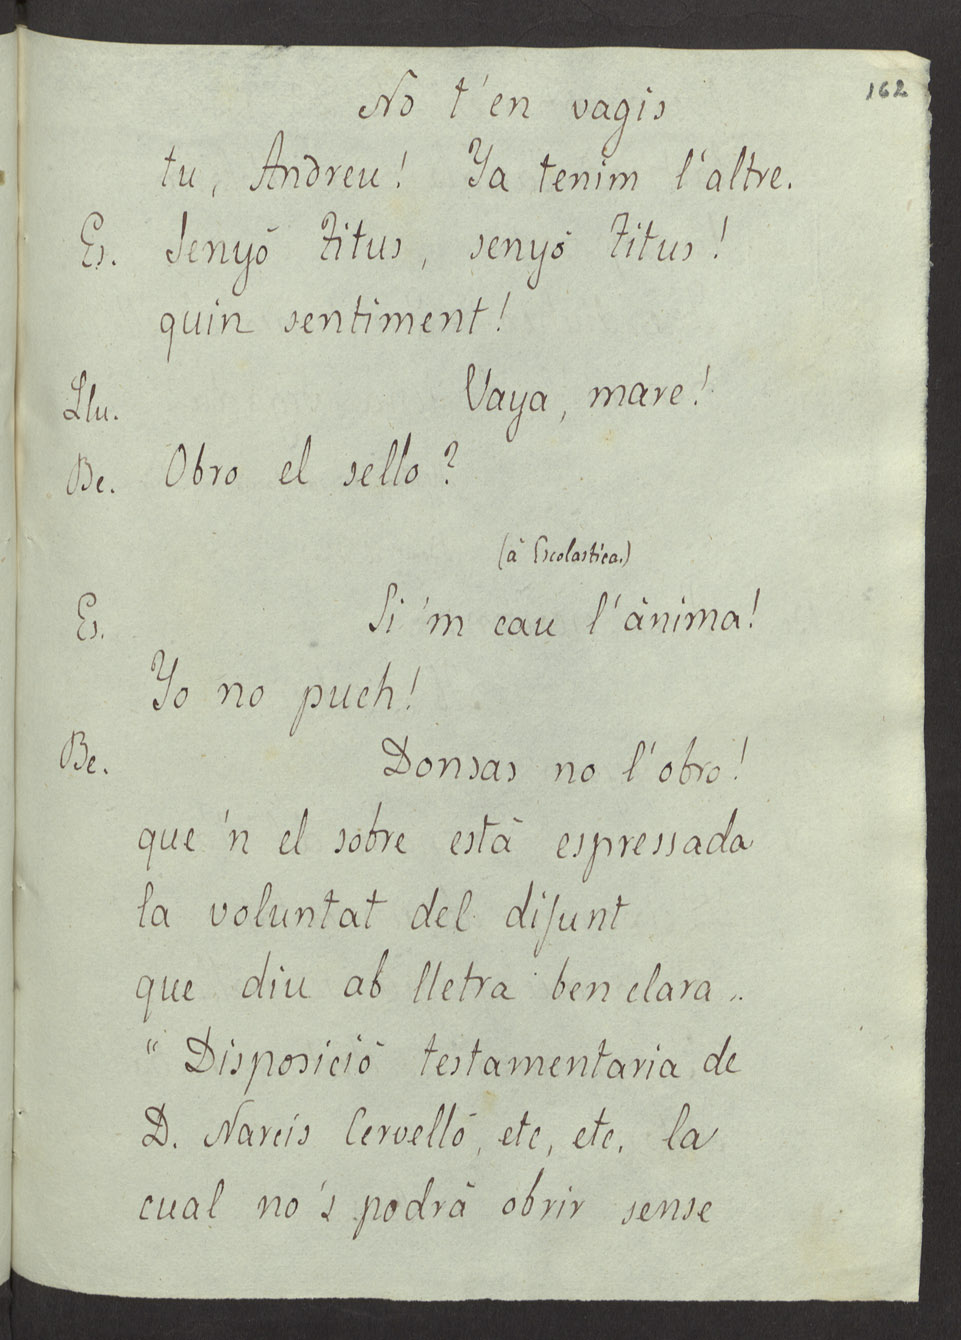 162
No t'en vagis
tu, Andreu! Ya tenim l'altre.
Es. Senyó Titus, senyó Titus!
quin sentiment!
Llu. Vaya, mare!
Be. Obro el sello?
(á Escolastica.)
Es. Si 'm cau l'ánima!
Yo no puch!
Be. Donsas no l'obro!
que 'n el sobre está espressada
la voluntat del difunt
que diu ab lletra ben clara..
"Disposició testamentaria de
D. Narcís Cervelló, etc, etc, la
cual no 's podrá obrir sense